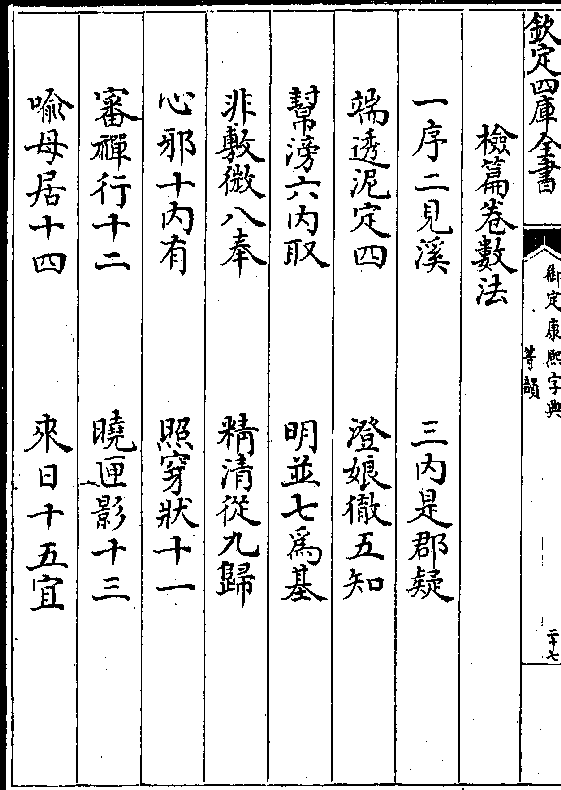 欽定四庫全書
御定康熙字典
等韻
二十七
檢篇卷數法
一序二見溪　三內是郡疑
端透泥定四　澄娘徹五知
幫滂六內取　明並七為基
非敷微八奉　精清從九歸
心邪十內有　照穿狀十一
審禪行十二　曉匣影十三
喻母居十四　來日十五宜